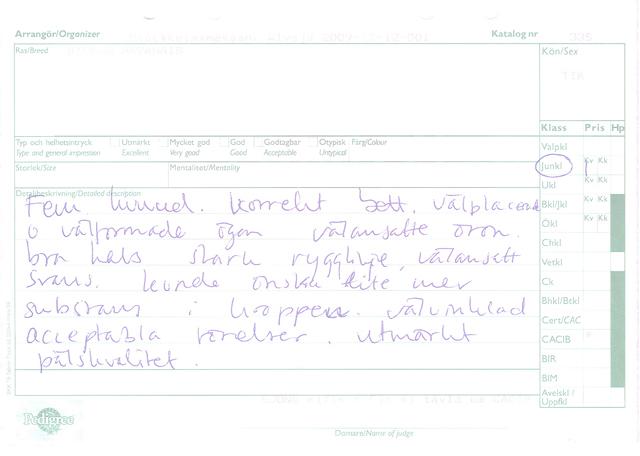 Arrangör/Organizer
Katalog nr
335
Ras/Breed
Kön/Sex
TIK
Klass Pris Hp
Typ och helhetsintryck Utmärkt Mycket god God Godtagbar Otypisk Färg/Colour
Type and general impression Excellent Very good Good Acceptable Untypical
Valpkl
Storlek/Size
Mentalitet/Mentality
Junkl Kv Kk
Ukl Kv Kk
Detaljbeskrivning/Detailed description
Fem. huvud. korrekt bett. välplacerade
o välformade ögon välansatte öron.
bra hals stark rygglinje, välansatt
svans. kunde önska lite mer
substans i kroppen. välvinklad
acceptabla rörelser. utmärkt
pälskvalitet.
Bkl/Jkl Kv Kk
Ökl Kv Kk
Chkl
Vetkl
Ck
Bhkl/Btkl
Cert/CAC
CACIB
BIR
BIM
Avelskl/
Uppfkl
Pedigree
Domare/Name of judge